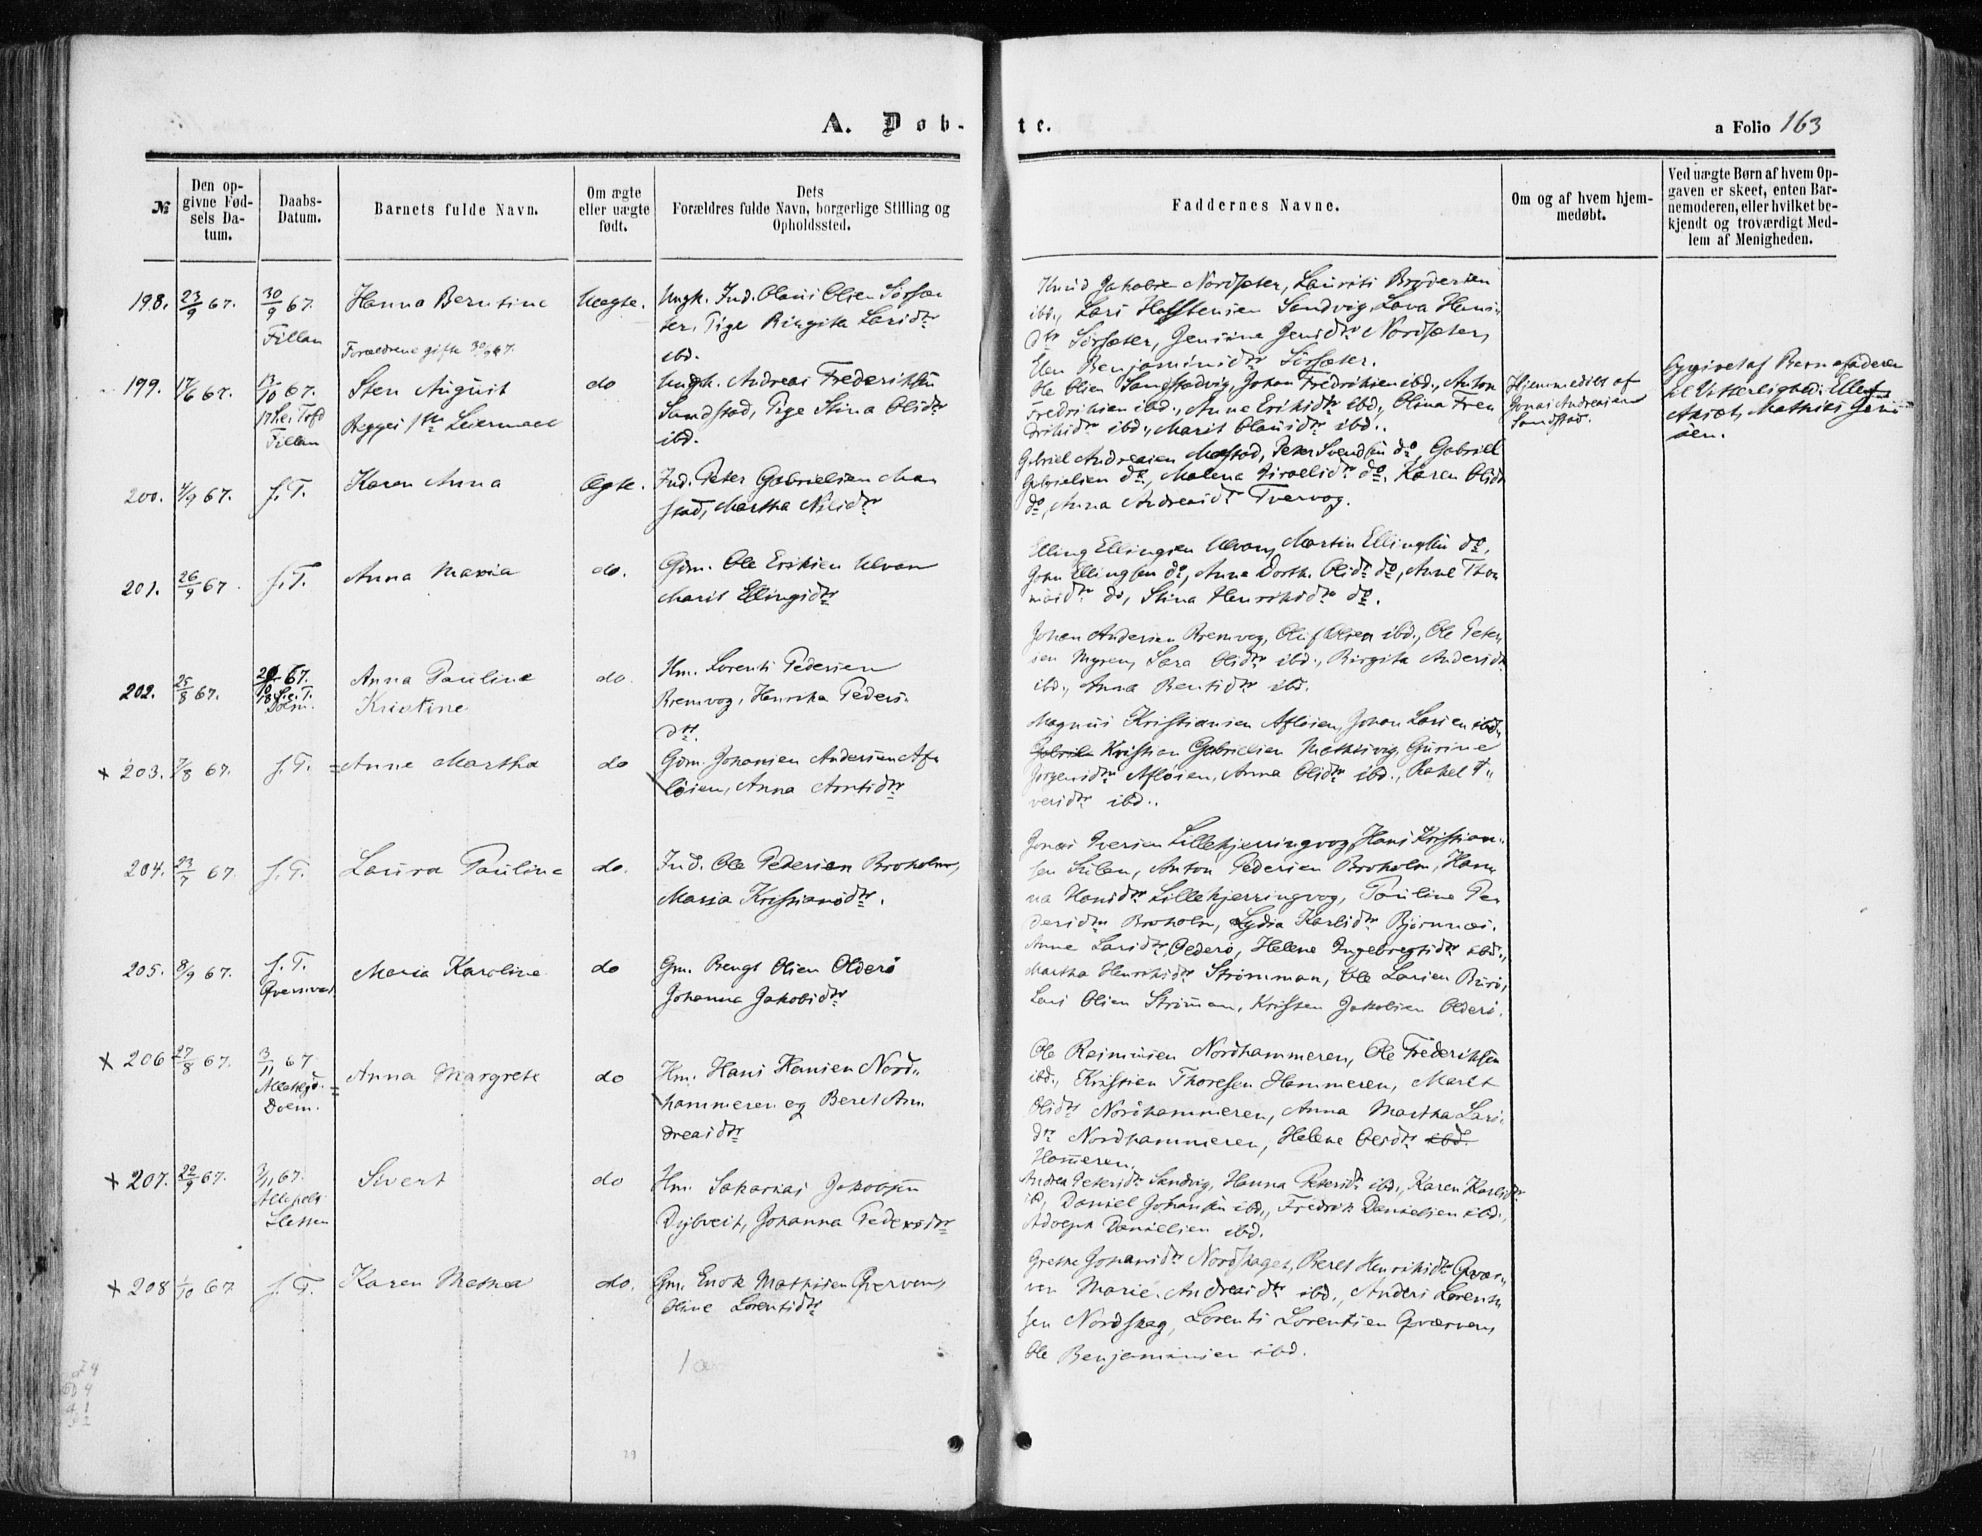 A. Døb-
te.
a Folio 163
№
Den op-
givne Fød-
sels Da-
tum.
Daabs-
Datum.
Barnets fulde Navn.
Om ægte
eller uægte
født.
Dets
Forældres fulde Navn, borgerlige Stilling og
Opholdssted.
Faddernes Navne.
Om og af hvem hjem-
medøbt.
Ved uægte Børn af hvem Op-
gaven er skeet, enten Bar-
nemoderen, eller hvilket be-
kjendt og troværdigt Med-
lem af Menigheden.
198. 23/9 67.
30/9 67.
Fillan
Hanna Berntine
Forældrene gifte 30/9 67.
Uægte.
Ungk. Ind. Olaus Olsen Sørsæ
ter, Pige Birgita Larsdtr
ibd.
Knud Jakobsen Nordsæter, Laurits Brodersen
ibd., Lars Hansen Sandvig, Lava Hans-
dtr Sørsæter, Jensine Jensdtr Nordsæter,
Elen Benjaminsdtr Sørsæter.
199. 17/6 67.
13/10 67.
Fillan
Sten August
Begges 1ste Leiermaal
do
Ungk. Andreas Frederiksen
Sandstad, Pige Stina Olsdtr
ibd.
Ole Olsen Sandstadvig, Johan Fredriksen ibd., Anton
Fredriksen ibd., Anne Eriksdtr ibd., Olina Fre
driksdtr ibd., Marit Olausdtr ibd..
Hjemmedøbt af
Jonas Andreasen
Sandstad.
Opgivet af Barnefaderen
til Vitterlighed: Ellef
Mathis Jen
sen.
200. 4/9 67.
s. T.
Karen Anna
Ægte.
Ind. Peter Gabrielsen Mæ
stad, Martha Nilsdtr
Gabriel Andreasen Mæstad, Peter Svendsen do, Gabriel
Gabrielsen do, Malena Israelsdtr do. Karen Olsdtr
do, Anna Andreasdtr Tvervog.
201. 26/9 67.
s. T.
Anna Maria
do.
Gdm. Ole Eriksen Ulvan
Marit Ellingsdtr
Elling Ellingsen Ulvan, Martin Ellingsen do,
John Ellingsen do, Anna Dorth. Olsdtr do, Anne Tho
masdtr do, Stina Henriksdtr do.
202. 25/8 67.
20/10 67.
18 S. e. T.
Dolm.
Anna Pauline
Kristine
do.
Hm. Lorents Pedersen
Bremvog, Henrika Peders-
dtr.
Johan Andersen Bremvog, Oluf Olsen ibd., Ole Peter
sen Myren, Sara Olsdtr ibd., Birgita Andersdtr
ibd., Anna Berntsdtr ibd.
× 203. 7/8 67.
s. T.
Anne Martha
do
Gdm. Johansen Andersen Af
løsen, Anna Arntsdtr
Magnus Kristiansen Afløsen, Johan Larsen ibd.,
Kristian Gabrielsen Mathisvig, Gurine
Jørgensdtr Afløsen, Anna Olsdtr ibd., Rakel I-
versdtr ibd..
204. 23/7 67.
s. T.
Laura Pauline
do.
Ind. Ole Pedersen Broholm,
Maria Kristiansdtr.
Jonas Iversen Lillekjerringvog, Hans Kristian-
sen Sulen, Anton Pedersen Broholm, Han
na Hansdtr Lillekjerringvog, Pauline Pe
dersdtr Broholm, Lydia Karlsdtr Bjørnnæs.
205. 8/9 67.
s. T.
Maria Karoline
do
Gm. Bengt Olsen Olderø
Johanna Jakobsdtr
Anne Larsdtr Olderø, Helene Ingebregtsdtr ibd.,
Martha Henriksdtr Strømman, Ole Larsen Burø,
Lars Olsen Strømman, Kristen Jakobsen Olderø.
× 206 27/8 67.
3/11 67
Allehelgd.
Dolm.
Anna Margrete
do
Hm. Hans Hansen Nord-
hammeren og Beret An
dreasdtr
Ole Rasmusen Nordhammeren, Ole Frederiksen
ibd., Kristen Thoresen Hammeren, Marit
Olsdtr Nordhammeren, Anna Martha Lars-
dtr Nordhammeren, Helene Olsdtr ibd.
Hammeren.
× 207. 22/9 67.
3/11 67.
Sivert
do
Hm. Sakarias Jakobsen
Dybveit, Johanna Pedersdtr
Andrea Petersdtr Sandvig, Hanna Petersdtr ibd., Karen Karlsdtr
ibd, Daniel Johansen ibd., Fredrik Danielsen ibd.,
Adolph Danielsen ibd.
× 208 1/10 67
s. T.
Karen Mathea
do.
Gm. Enok Mathisen Qværven,
Oline Lorentsdtr
Grethe Johansdtr Nordskaget, Beret Henriksdtr Qvær-
ven Marie Andreasdtr ibd., Anders Lorent
sen Nordskag, Lorents Lorentsen Qværven,
Ole Benjaminsen ibd.